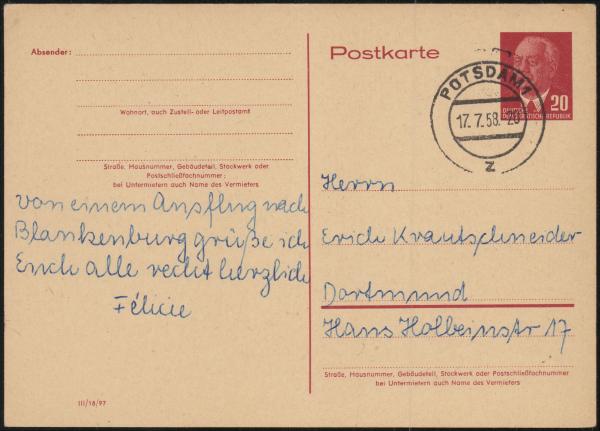 Absender:
Wohnort, auch Zustell- oder Leitpostamt
Straße, Hausnummer, Gebäudeteil, Stockwerk oder
Postschließfachnummer;
bei Untermietern auch Name des Vermieters
von einem Ausflug nach
Blankenburg grüße ich
Euch alle recht herzlich
Félicie
III/18/97
Postkarte
POTSDAM 1
17. 7. 58.
z
20
DEUTSCHE
DEMOKRATISCHE REPUBLIK
Herrn
Erich Krautschneider
Dortmund
Hans Holbeinstr 17
Straße, Hausnummer, Gebäudeteil, Stockwerk oder Postschließfachnummer
bei Untermietern auch Name des Vermieters